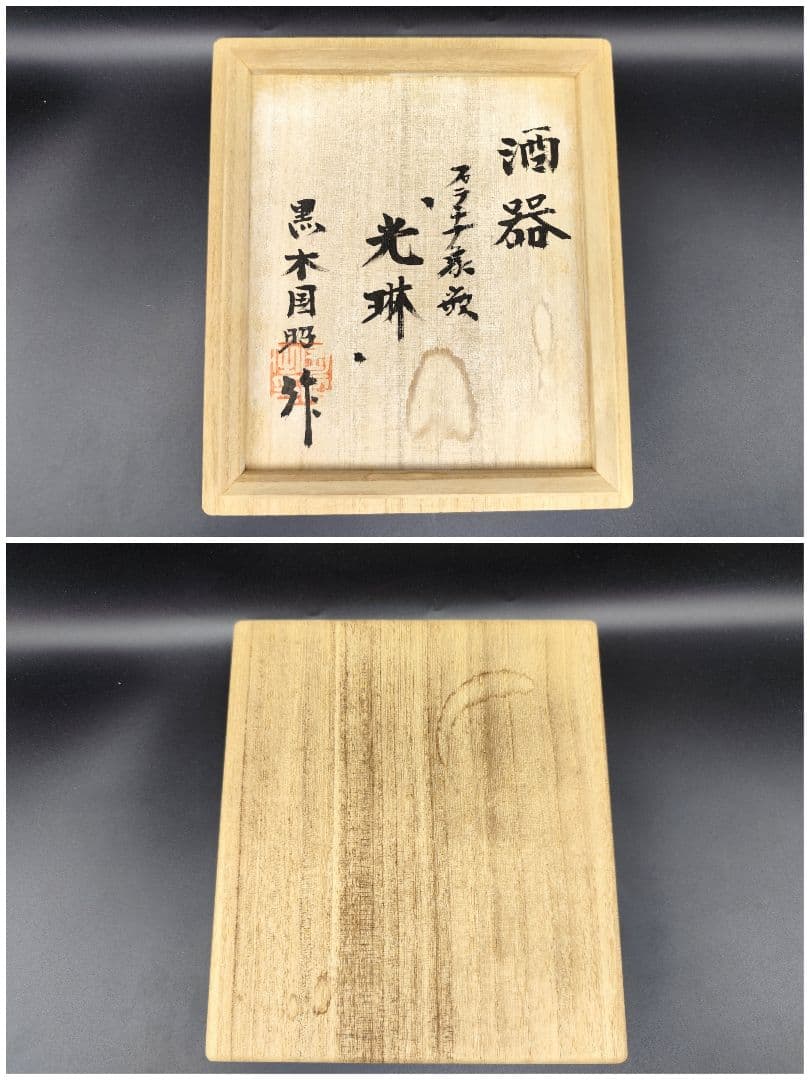 酒器
プラチナ象嵌
〝光琳〟
黒木国昭作